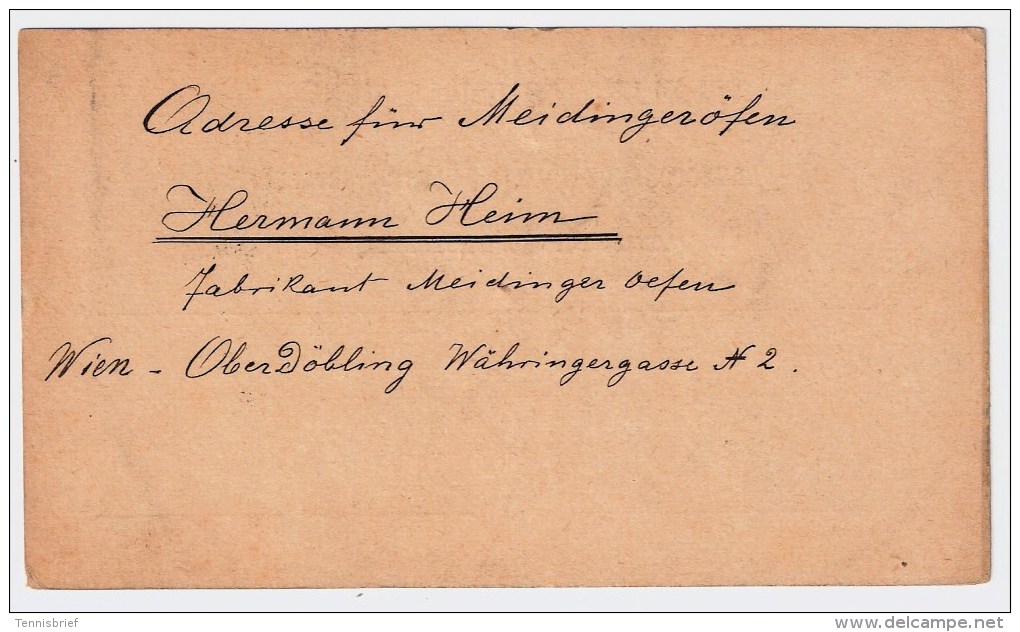 Adresse für Meidingeröfen
Hermann Heim
Fabrikant Meidinger Oefen
Wien - OberDöbling Währingergasse N 2.
Tennisbrief
delcampe.net